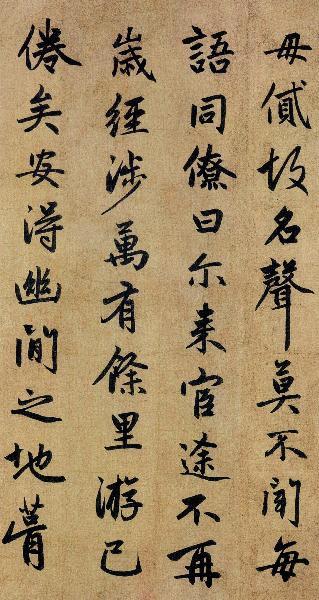 毋貳故名聲莫不聞每
語同僚曰尔来官途不再
歲經涉萬有餘里游已
倦矣安得幽閒之地葺